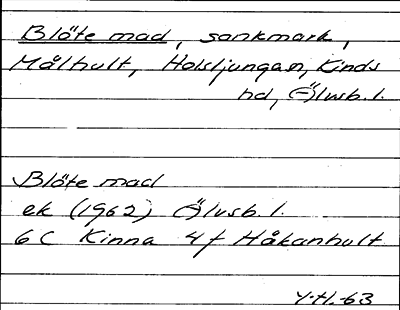 Blöte mad, sankmark,
Målhult, Holsljungan, Kinds
hd, Älvsb. l.
Blöte mad
ek (1962) Älvsb. l.
6 C Kinna 4 f Håkanhult
Y.H.-63